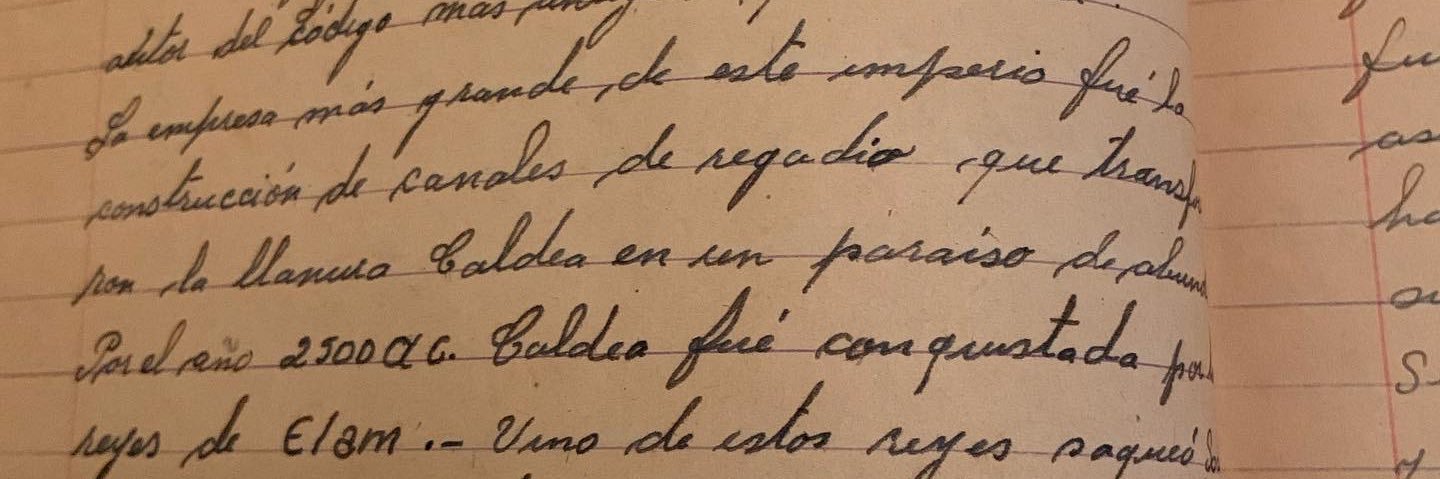 autor del Código mas
La empresa más grande, de este imperio fué la
construcción de canales de regadio que transfo
ron la llanura Caldea en un paraiso de abun
Por el año 2500 a C. Caldea fué conquistada por
reyes de Elam .- Uno de estos reyes saqueó
fu
as
ha
su
S
y